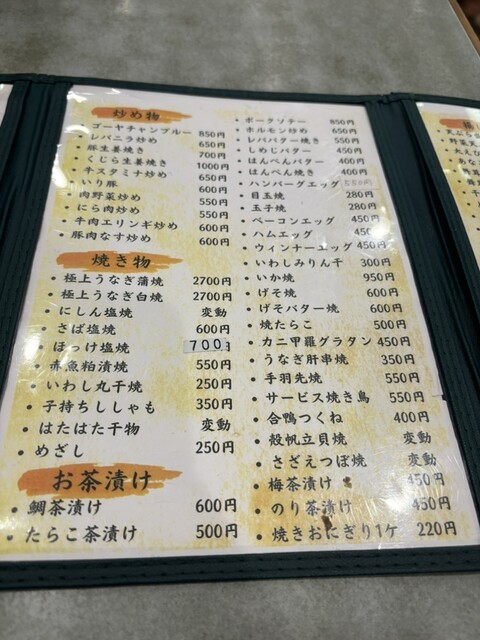 炒め物
・ゴーヤチャンプルー 850円
・レバニラ炒め 650円
・豚生姜焼き 700円
・くじら生姜焼き 1000円
・牛スタミナ炒め 650円
・いり豚 600円
・肉野菜炒め 550円
・にら肉炒め 550円
・牛肉エリンギ炒め 600円
・豚肉なす炒め 600円
焼き物
・極上うなぎ蒲焼 2700円
・極上うなぎ白焼 2700円
・にしん塩焼 変動
・さば塩焼 600円
・ほっけ塩焼 700円
・赤魚粕漬焼 550円
・いわし丸干焼 250円
・子持ちししゃも 350円
・はたはた干物 変動
・めざし 250円
お茶漬け
・鯛茶漬け 600円
・たらこ茶漬け 500円
・ポークソテー 850円
・ホルモン炒め 650円
・レババター焼き 550円
・しめじバター 450円
・はんぺんバター 400円
・はんぺん焼き 400円
・ハンバーグエッグ
・目玉焼 280円
・玉子焼 280円
・ベーコンエッグ 450円
・ハムエッグ 450円
・ウィンナーエッグ 450円
・いわしみりん干 300円
・いか焼 950円
・げそ焼 600円
・げそバター焼 600円
・焼たらこ 500円
・カニ甲羅グラタン 450円
・うなぎ肝串焼 350円
・手羽先焼 550円
・サービス焼き鳥 550円
・合鴨つくね 400円
・殻帆立貝焼 変動
・さざえつぼ焼 変動
・梅茶漬け 450円
・のり茶漬け 450円
・焼きおにぎり1ケ 220円